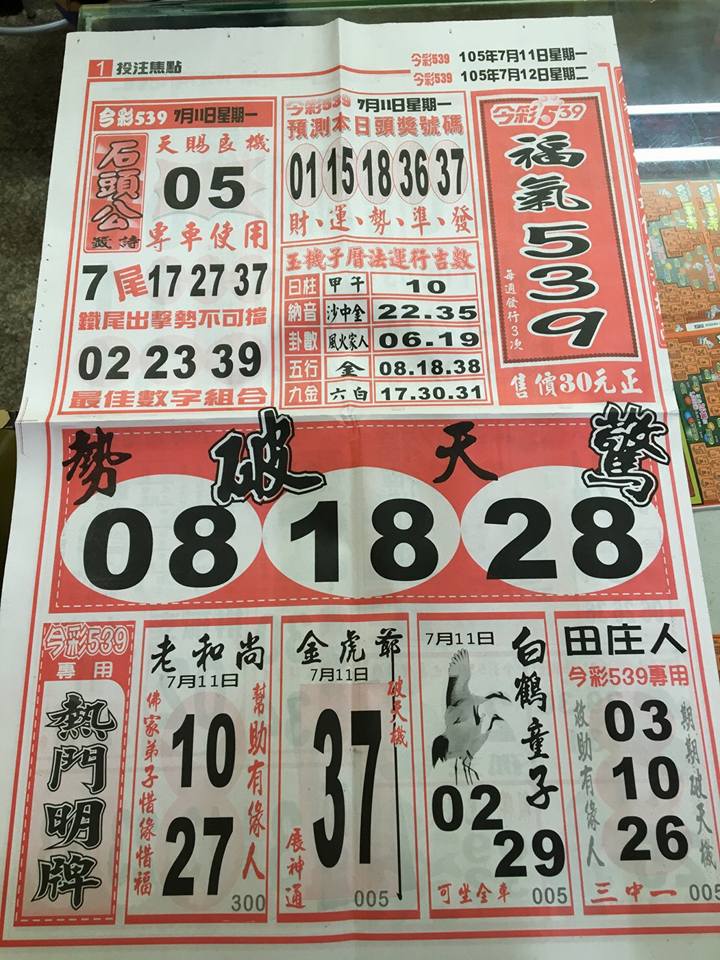 1 投注焦點
今彩539 105年7月11日星期一
今彩539 105年7月12日星期二
今彩539 7月11日星期一
石頭公
籤詩
天賜良機
05
專車使用
7尾 17 27 37
鐵尾出擊勢不可擋
02 23 39
最佳數字組合
今彩539 7月11日星期一
預測本日頭獎號碼
01 15 18 36 37
財、運、勢、準、發
玉機子曆法運行吉數
日柱 甲午 10
納音 沙中金 22.35
卦數 風火家人 06.19
五行 金 08.18.38
九金 六白 17.30.31
今彩539
福氣539
每週發行3次
售價30元正
勢破天驚
08 18 28
今彩539
專用
熱門明牌
老和尚
7月11日
幫助有緣人
10
27
佛家弟子惜緣惜福
300
金虎爺
7月11日
破天機
37
展神通
005
7月11日
白鶴童子
02
29
可坐全車 005
田庄人
今彩539專用
期期破天機
03
10
26
救助有緣人
三中一 005